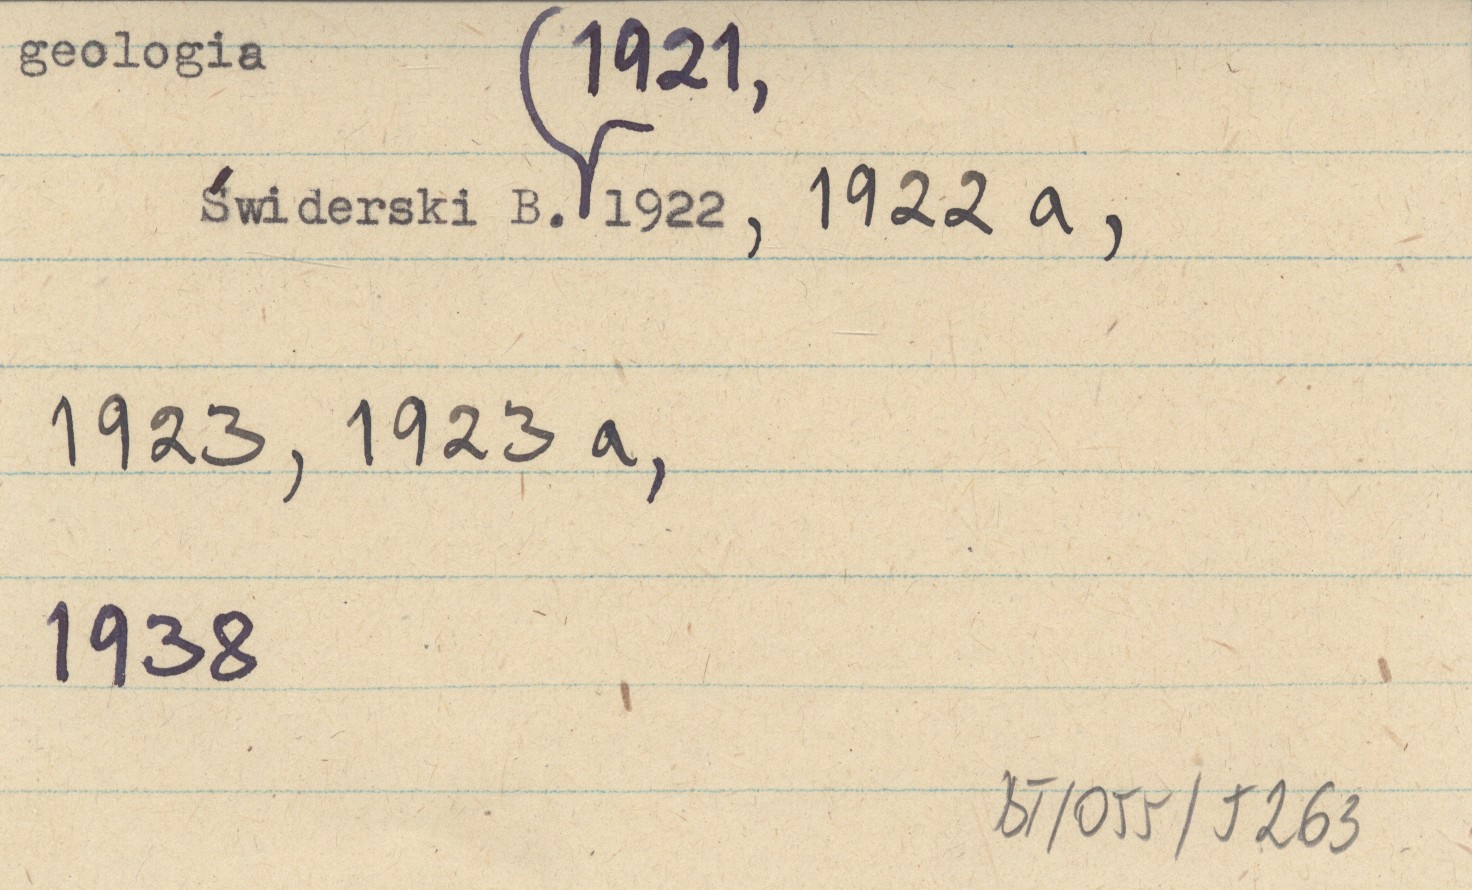 geologia
1921,
Świderski B. 1922, 1922 a,
1923, 1923 a,
1938
BT/055/5263